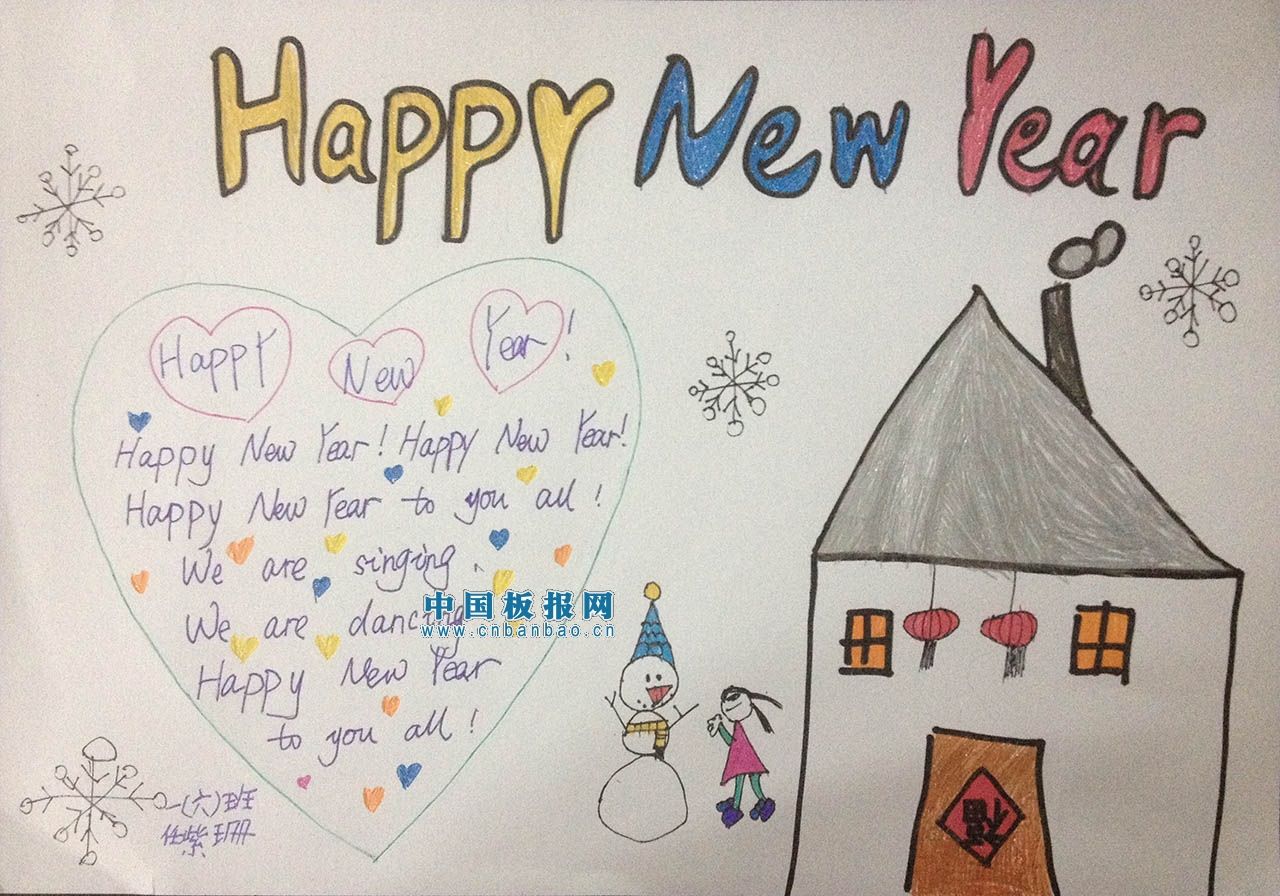 Happy New Year
Happy New Year!
Happy New Year! Happy New Year!
Happy New Year to you all!
We are singing.
We are dancing
中国板报网
www.cnbanbao.cn
Happy New Year
to you all!
一(六)班
任紫珊
福